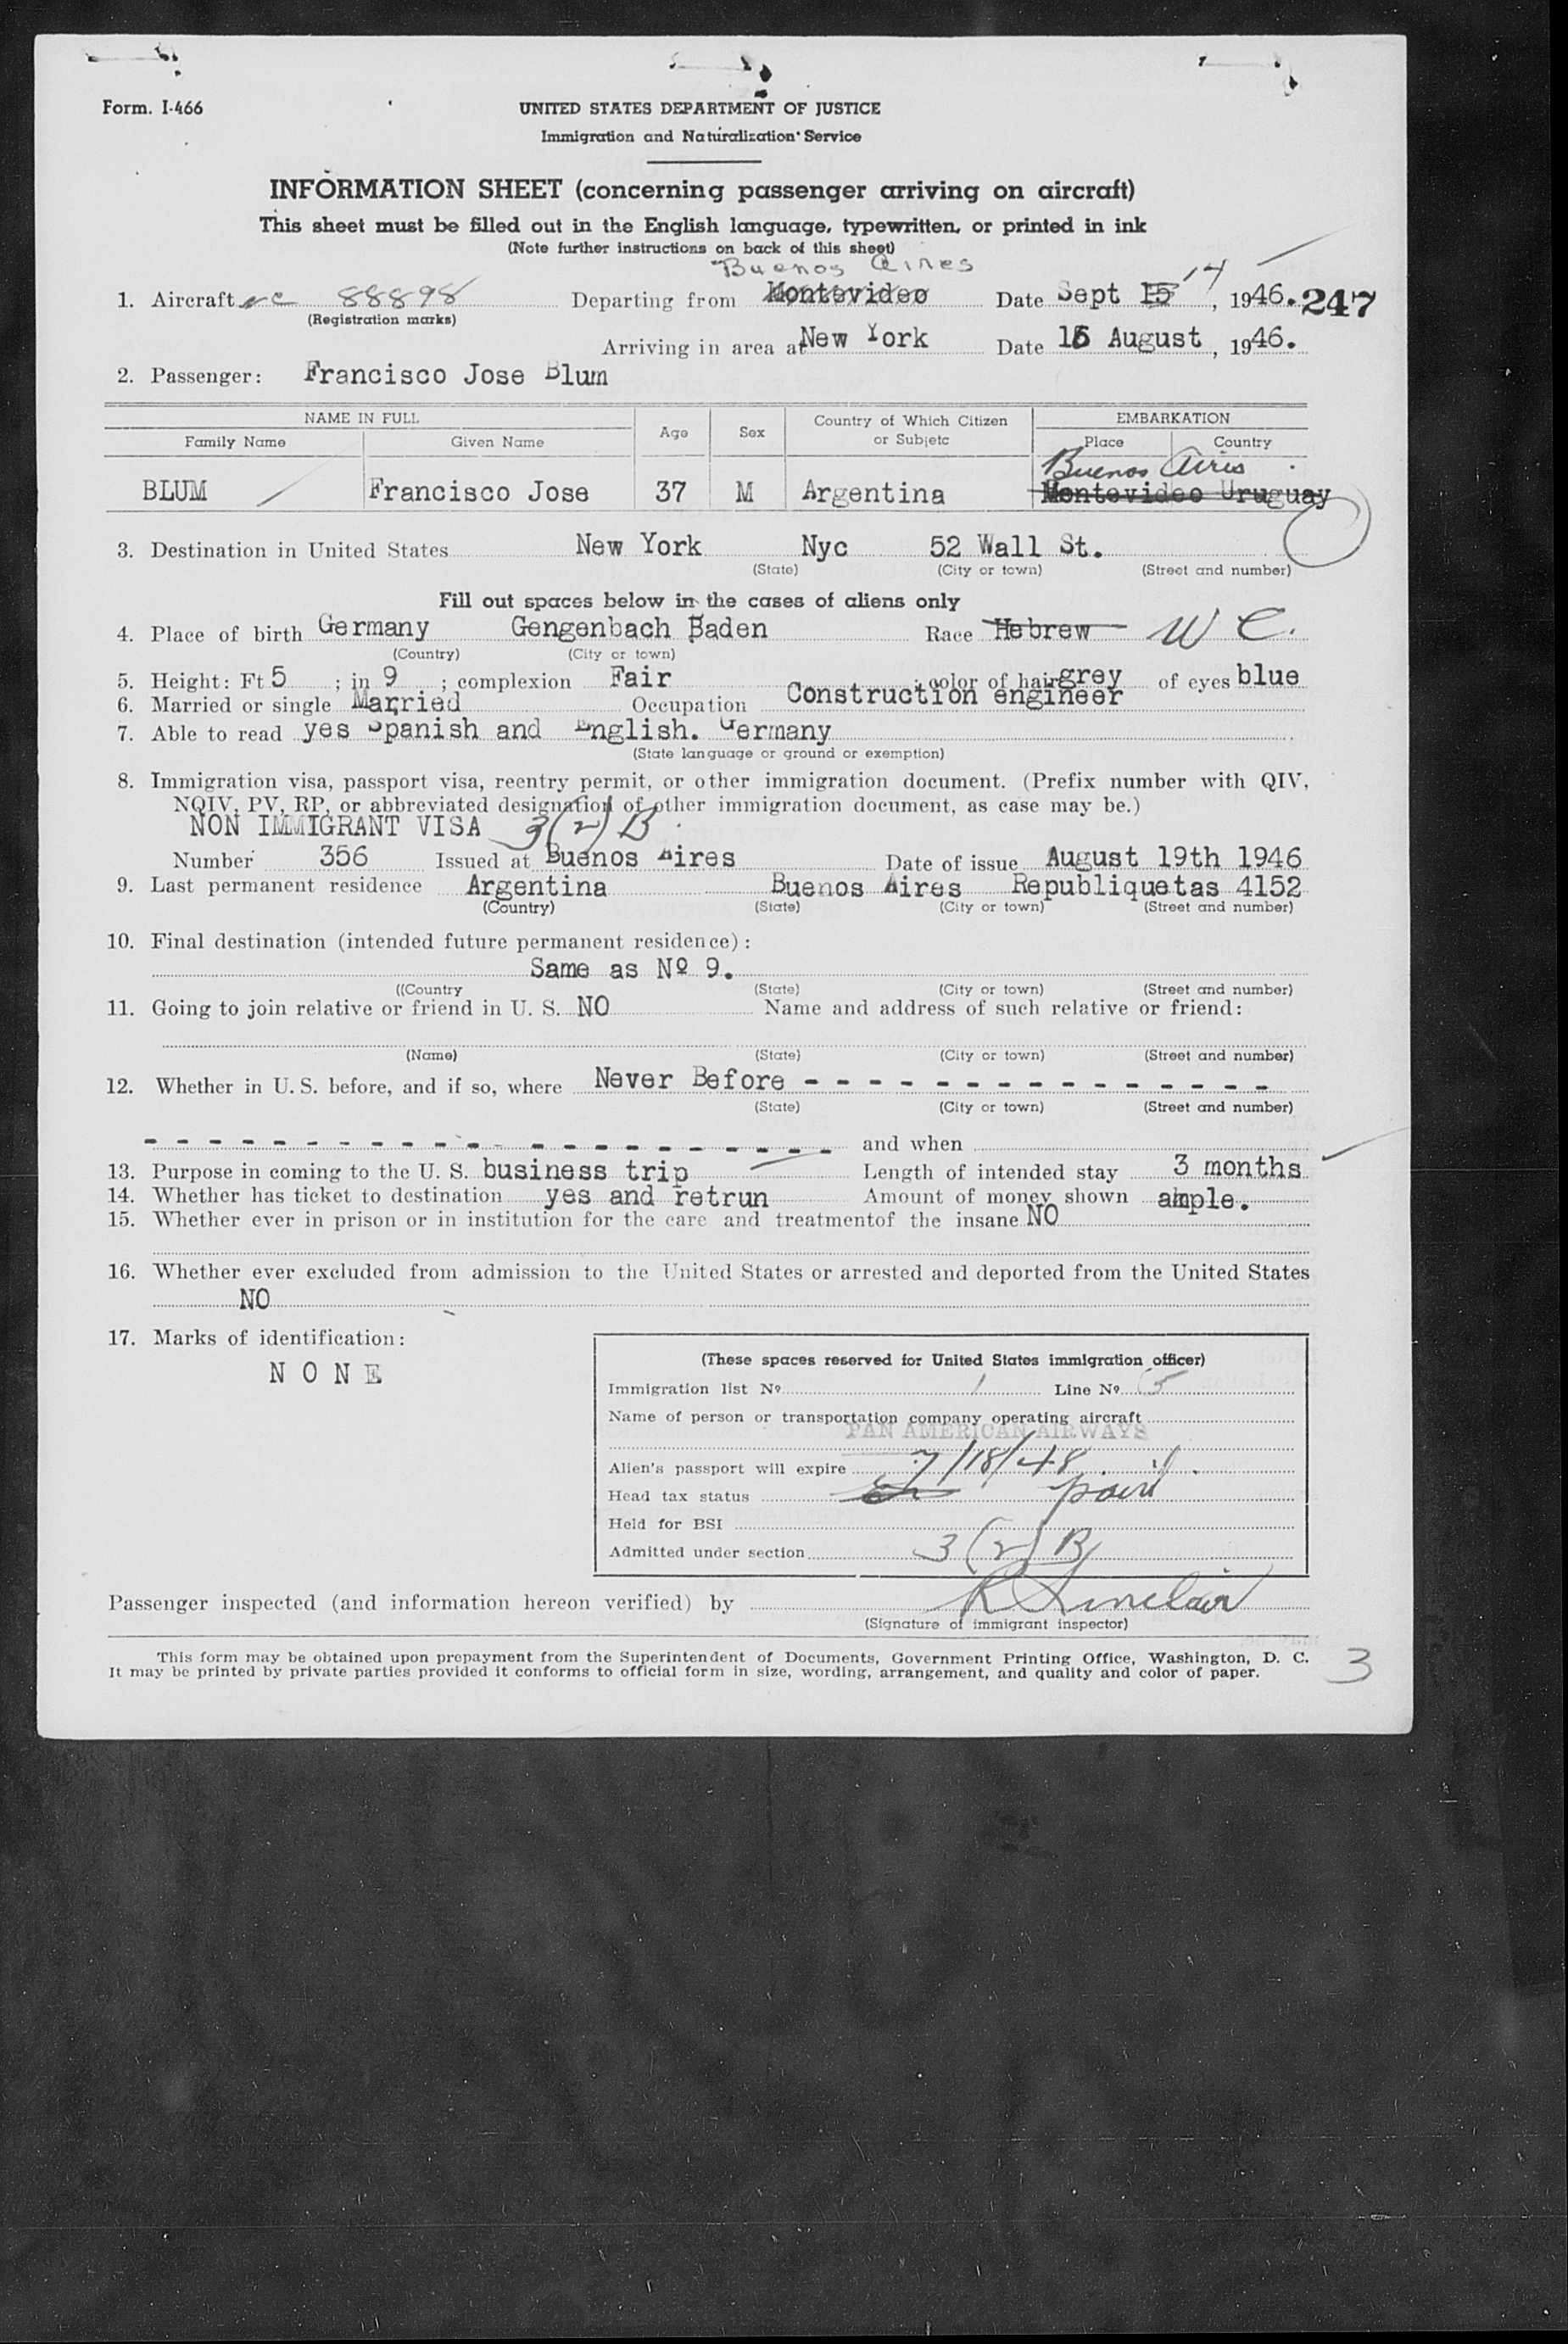 Form. I-466
UNITED STATES DEPARTMENT OF JUSTICE
Immigration and Naturalization Service
INFORMATION SHEET (concerning passenger arriving on aircraft)
This sheet must be filled out in the English language, typewritten, or printed in ink
(Note further instructions on back of this sheet)
Buenos Aires
1. Aircraft nc 88898 Departing from Montevideo Date Sept 15 14, 1946. 247
(Registration marks)
Arriving in area at New York Date 16 August, 1946.
2. Passenger: Francisco Jose Blum
NAME IN FULL Age Sex Country of Which Citizen or Subjetc EMBARKATION
Family Name Given Name Place Country
Buenos Aires
BLUM Francisco Jose 37 M Argentina Montevideo Uruguay
3. Destination in United States New York Nyc 52 Wall St.
(State) (City or town) (Street and number)
Fill out spaces below in the cases of aliens only
4. Place of birth Germany Gengenbach Baden Race Hebrew W C.
(Country) (City or town)
5. Height: Ft 5 ; in 9 ; complexion Fair ; color of hair grey of eyes blue
6. Married or single Married Occupation Construction engineer
7. Able to read yes Spanish and English. Germany
(State language or ground or exemption)
8. Immigration visa, passport visa, reentry permit, or other immigration document. (Prefix number with QIV,
NQIV, PV, RP, or abbreviated designation of other immigration document, as case may be.)
NON IMMIGRANT VISA 3(2)B
Number 356 Issued at Buenos Aires Date of issue August 19th 1946
9. Last permanent residence Argentina Buenos Aires Republiquetas 4152
(Country) (State) (City or town) (Street and number)
10. Final destination (intended future permanent residence):
Same as Nº 9.
((Country (State) (City or town) (Street and number)
11. Going to join relative or friend in U. S. NO Name and address of such relative or friend:
(Name) (State) (City or town) (Street and number)
12. Whether in U. S. before, and if so, where Never Before - - - - - - - - - - - - - - -
(State) (City or town) (Street and number)
- - - - - - - - - - - - - - - - - - - - - - and when
13. Purpose in coming to the U. S. business trip Length of intended stay 3 months
14. Whether has ticket to destination yes and retrun Amount of money shown ample.
15. Whether ever in prison or in institution for the care and treatmentof the insane NO
16. Whether ever excluded from admission to the United States or arrested and deported from the United States
NO
17. Marks of identification:
N O N E
(These spaces reserved for United States immigration officer)
Immigration list Nº 1 Line Nº 5
Name of person or transportation company operating aircraft
PAN AMERICAN AIRWAYS
Alien's passport will expire 7/18/48
Head tax status paid
Held for BSI
Admitted under section 3(2)B
Passenger inspected (and information hereon verified) by R Sinclair
(Signature of immigrant inspector)
This form may be obtained upon prepayment from the Superintendent of Documents, Government Printing Office, Washington, D. C.
It may be printed by private parties provided it conforms to official form in size, wording, arrangement, and quality and color of paper.
3